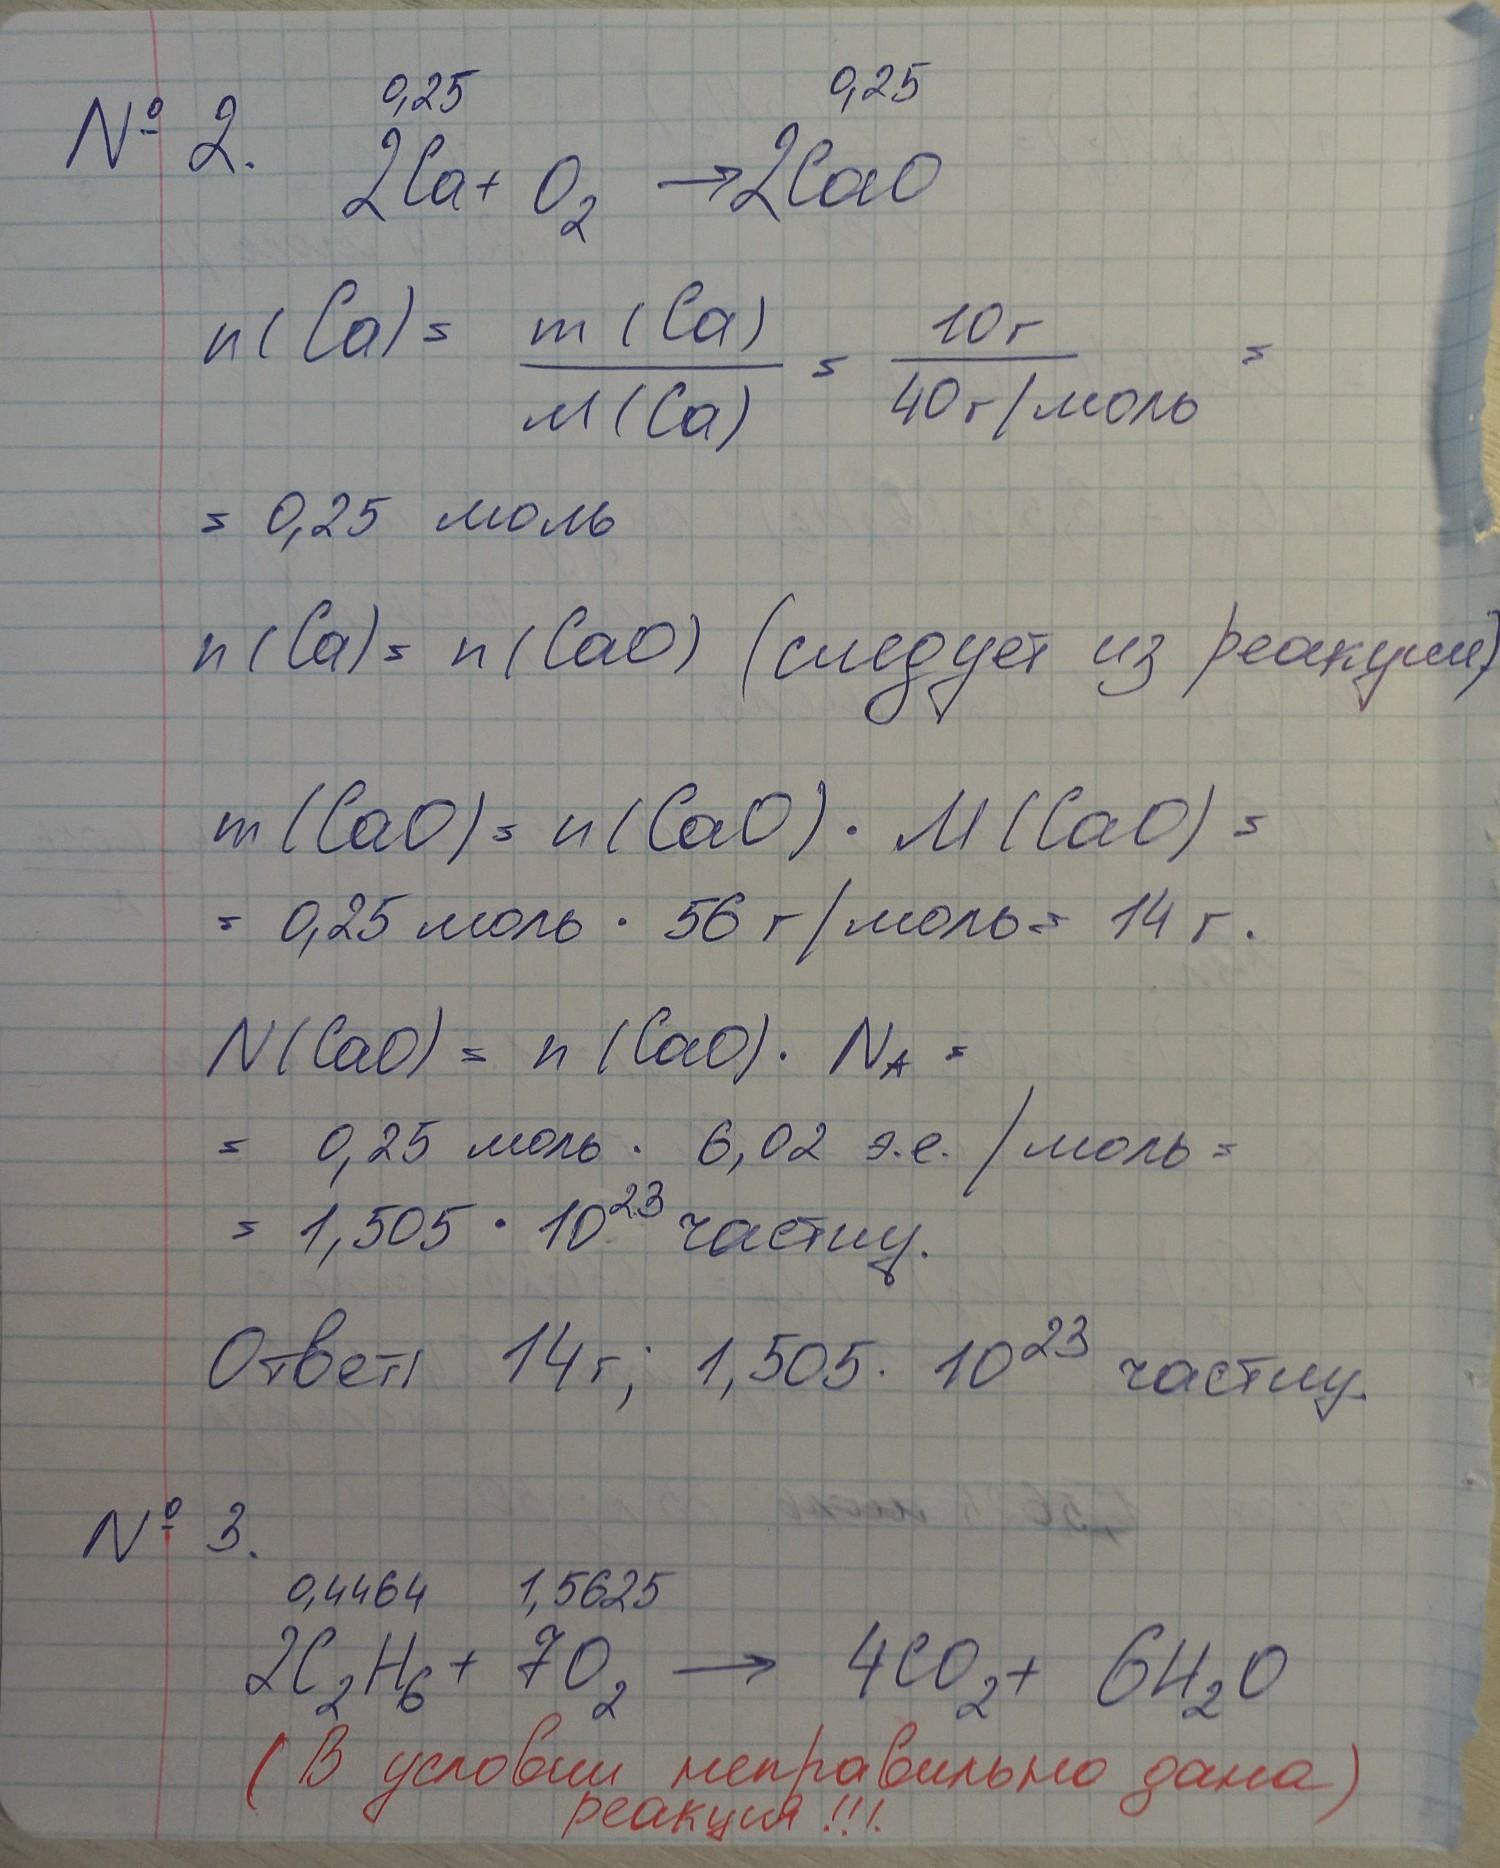 0,25 0,25
№ 2. 2Ca + O₂ → 2CaO
n(Ca) = m(Ca) / M(Ca) = 10 г / 40 г/моль =
= 0,25 моль
n(Ca) = n(CaO) (следует из реакции)
m(CaO) = n(CaO) · M(CaO) =
= 0,25 моль · 56 г/моль = 14 г.
N(CaO) = n(CaO) · N_A =
= 0,25 моль · 6,02 э.е. / моль =
= 1,505 · 10²³ частиц.
Ответ: 14 г; 1,505 · 10²³ частиц.
№ 3.
0,4464 1,5625
2C₂H₆ + 7O₂ → 4CO₂ + 6H₂O
(В условии неправильно дана)
реакция!!!